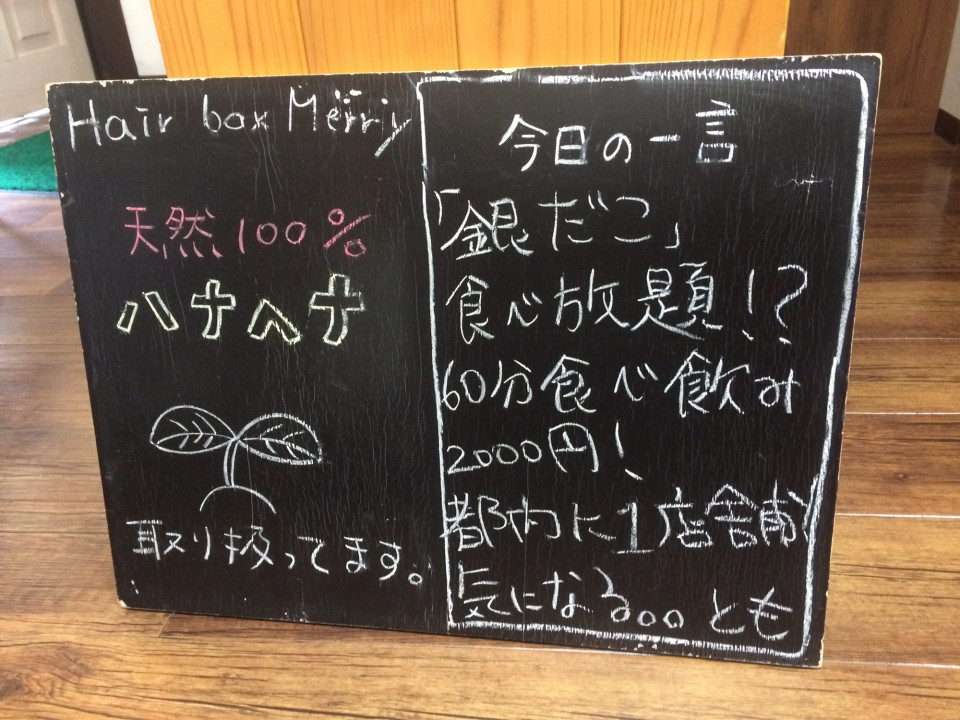 Hair box Merry
天然100%
ハナヘナ
取り扱ってます。
今日の一言
「銀だこ」
食べ放題!?
60分食べ飲み
2000円!
都内に1店舗!
気になる。。。とも